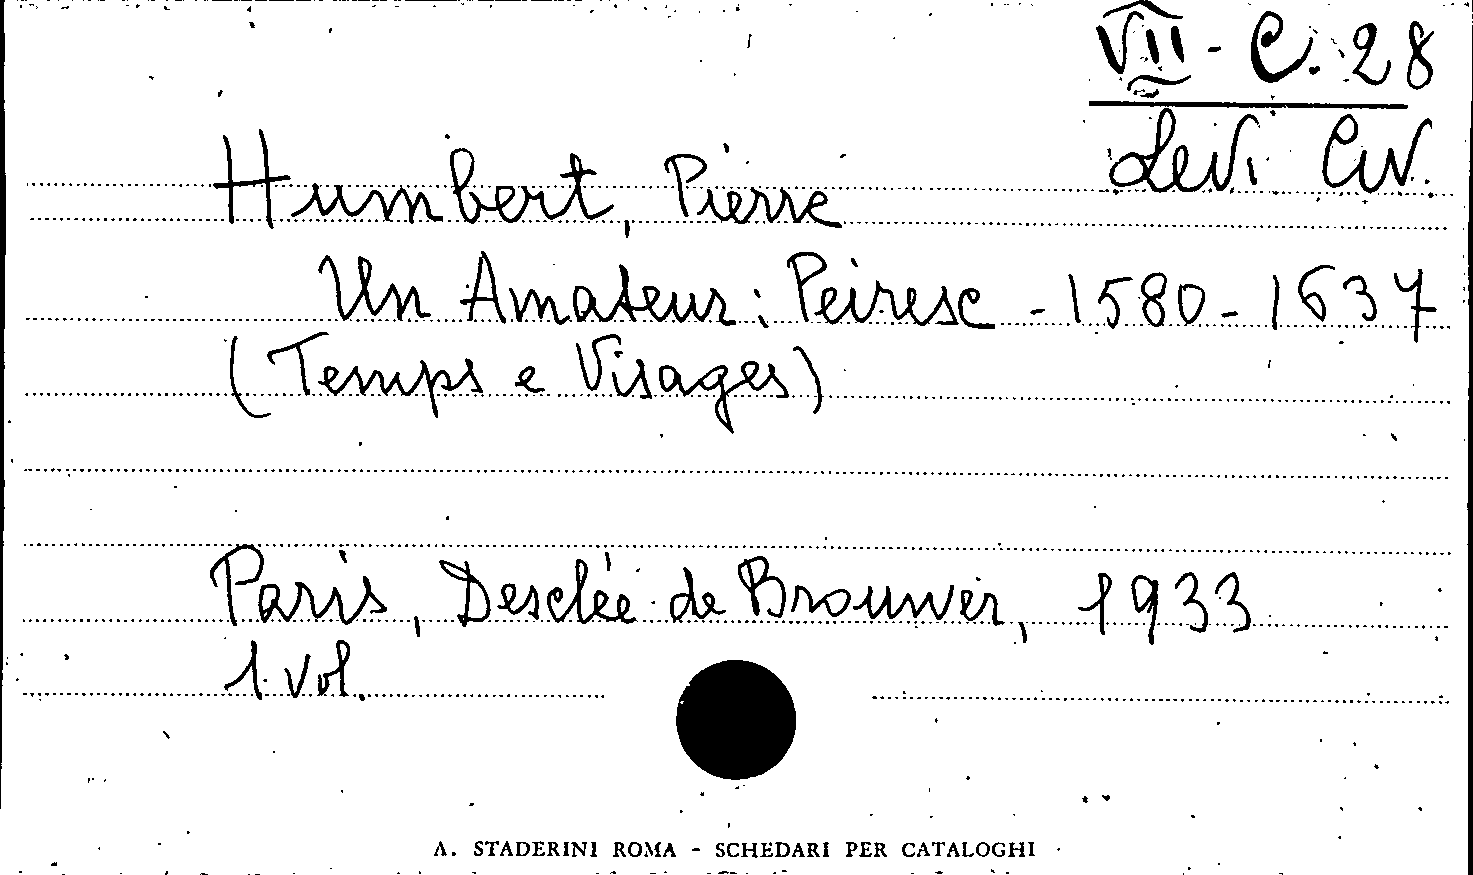 VII - C. 28
Levi Civ.
Humbert, Pierre
Un Amateur: Peiresc - 1580 - 1637
(Temps e Visages)
Paris, Desclée de Brouwer, 1933
1 vol.
A. STADERINI ROMA - SCHEDARI PER CATALOGHI